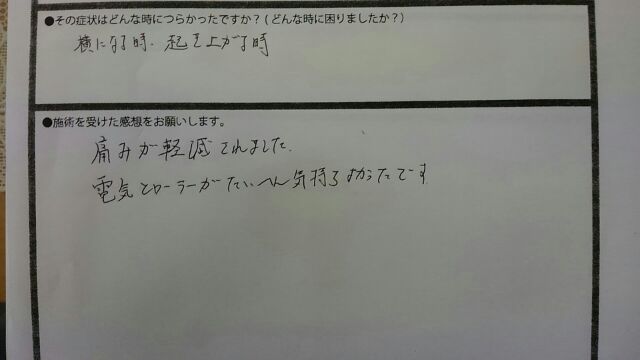 ●その症状はどんな時につらかったですか？(どんな時に困りましたか？)
横になる時、起き上がる時
●施術を受けた感想をお願いします。
痛みが軽減されました。
電気とローラーがたいへん気持ちよかったです